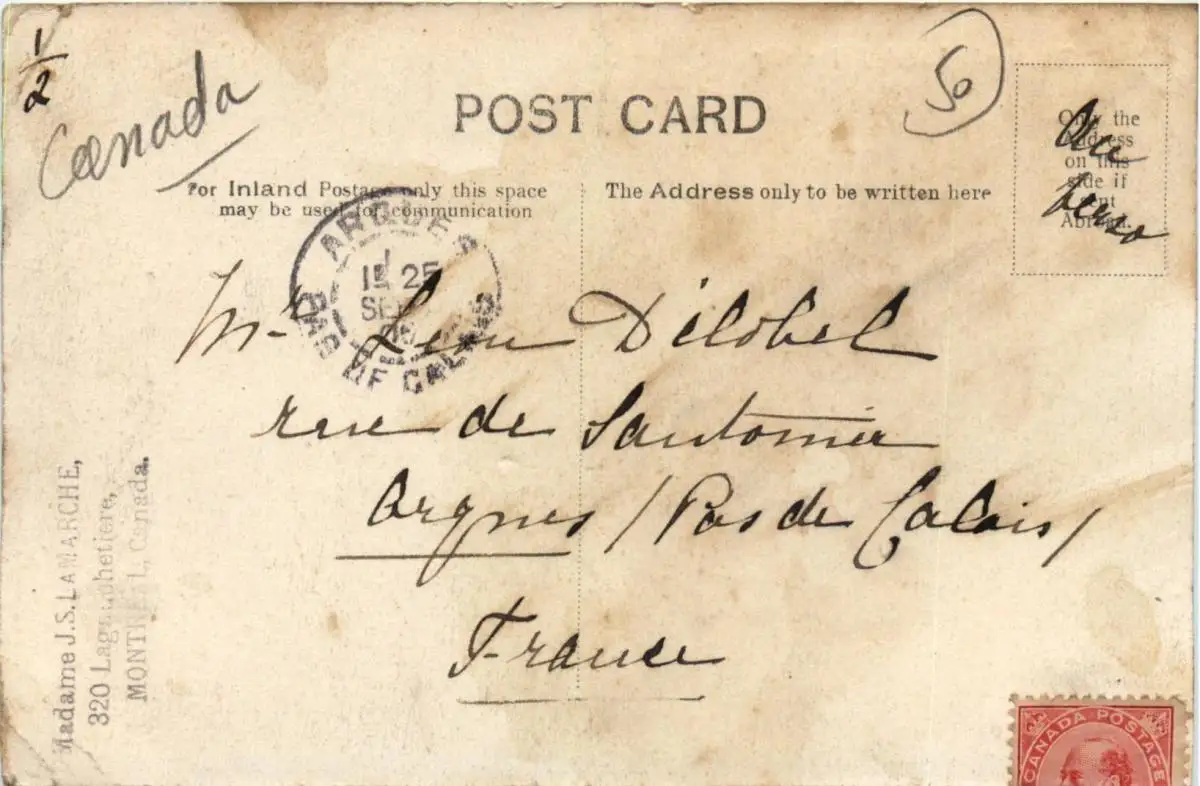 1/2
Canada
50
POST CARD
For Inland Postage only this space
may be used for communication
The Address only to be written here
Only the
Address
on this
side if
sent
Abroad.
Au
verso
ARQUES
15 25
SEPT
PAS DE CALAIS
Mr Léon Délobel
rue de Santomer
Arques / Pas de Calais /
France
Madame J.S. LAMARCHE,
320 Lagauchetiere,
MONTREAL, Canada.
CANADA POSTAGE